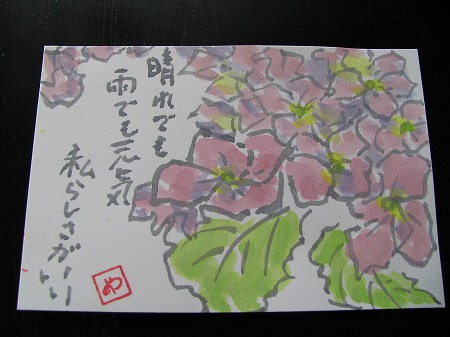 晴れでも
雨でも元気
私らしさがいい
や